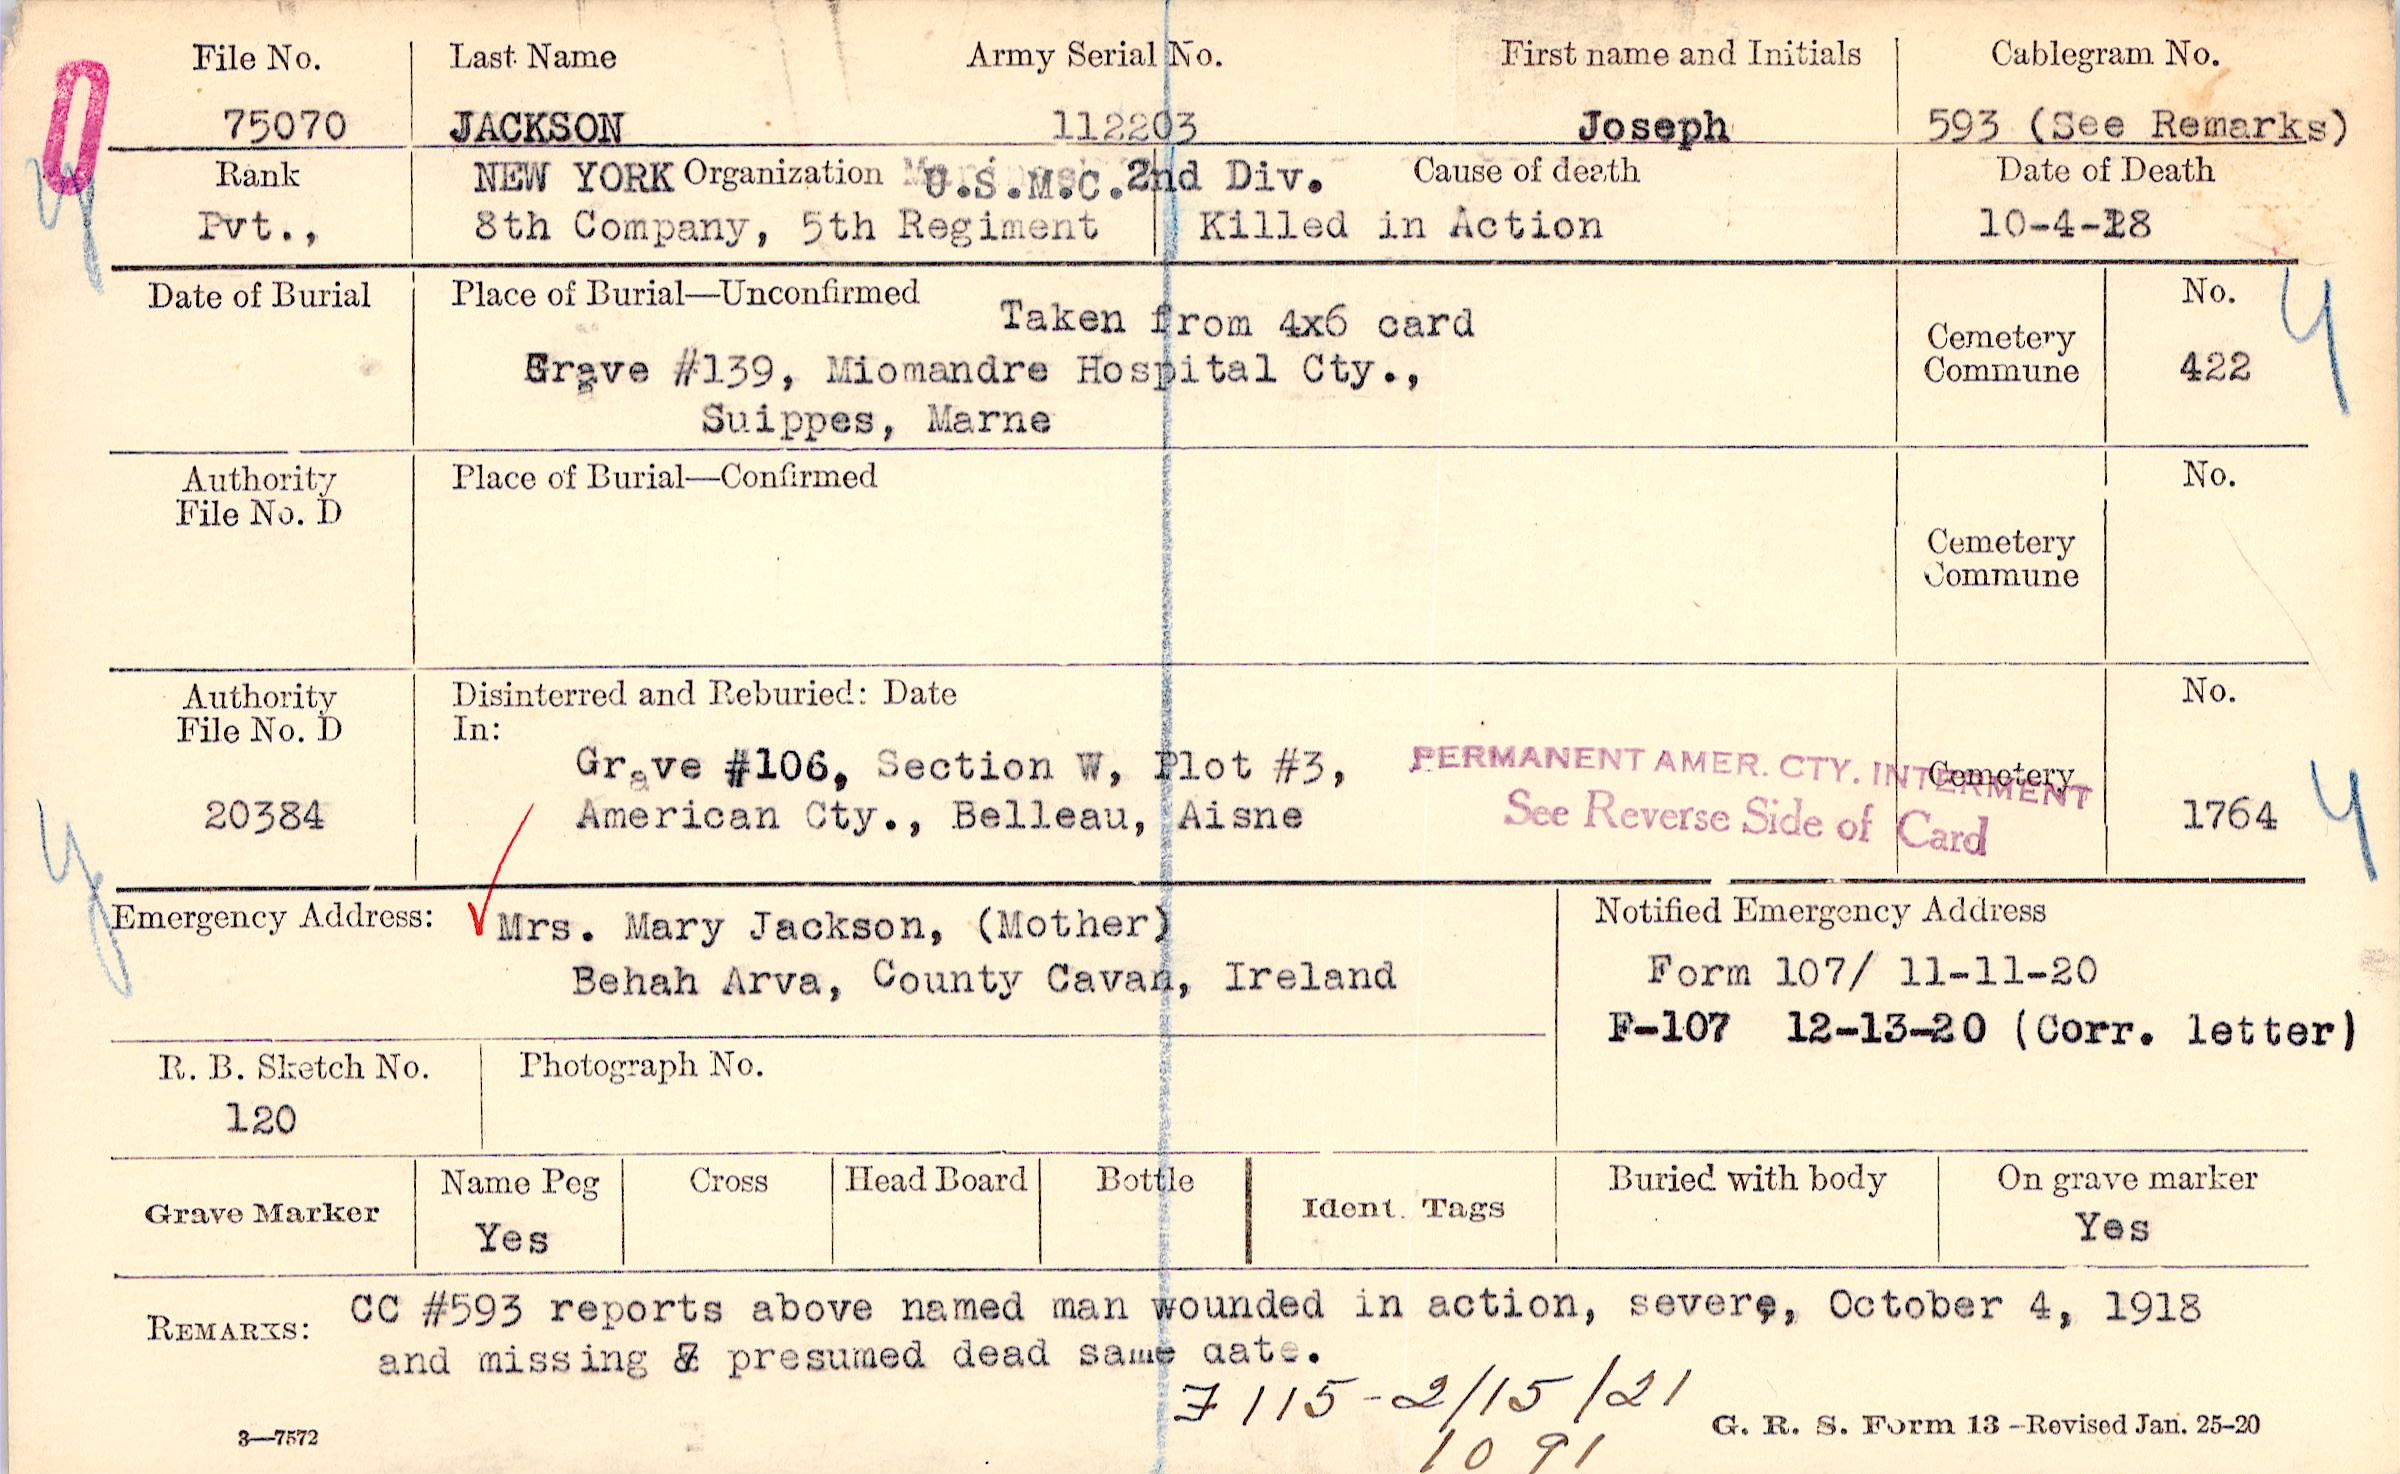 File No. Last Name Army Serial No. First name and Initials Cablegram No.
75070 JACKSON 112203 Joseph 593 (See Remarks)
Rank NEW YORK Organization U.S.M.C. 2nd Div. Cause of death Date of Death
Pvt., 8th Company, 5th Regiment Killed in Action 10-4-18
Date of Burial Place of Burial—Unconfirmed No.
Taken from 4x6 card
Cemetery
Grave #139, Miomandre Hospital Cty., Commune 422
Suippes, Marne
Authority Place of Burial—Confirmed No.
File No. D
Cemetery
Commune
Authority Disinterred and Reburied: Date No.
File No. D In:
Grave #106, Section W, Plot #3, PERMANENT AMER. CTY. INTERMENT Cemetery
20384 American Cty., Belleau, Aisne See Reverse Side of Card 1764
Emergency Address: Mrs. Mary Jackson, (Mother) Notified Emergency Address
Behah Arva, County Cavan, Ireland Form 107/ 11-11-20
F-107 12-13-20 (Corr. letter)
R. B. Sketch No. Photograph No.
120
Name Peg Cross Head Board Bottle Buried with body On grave marker
Grave Marker Ident. Tags
Yes Yes
REMARKS: CC #593 reports above named man wounded in action, severe, October 4, 1918
and missing & presumed dead same date.
F 115-2/15/21
G. R. S. Form 13-Revised Jan. 25-20
3—7572
1091